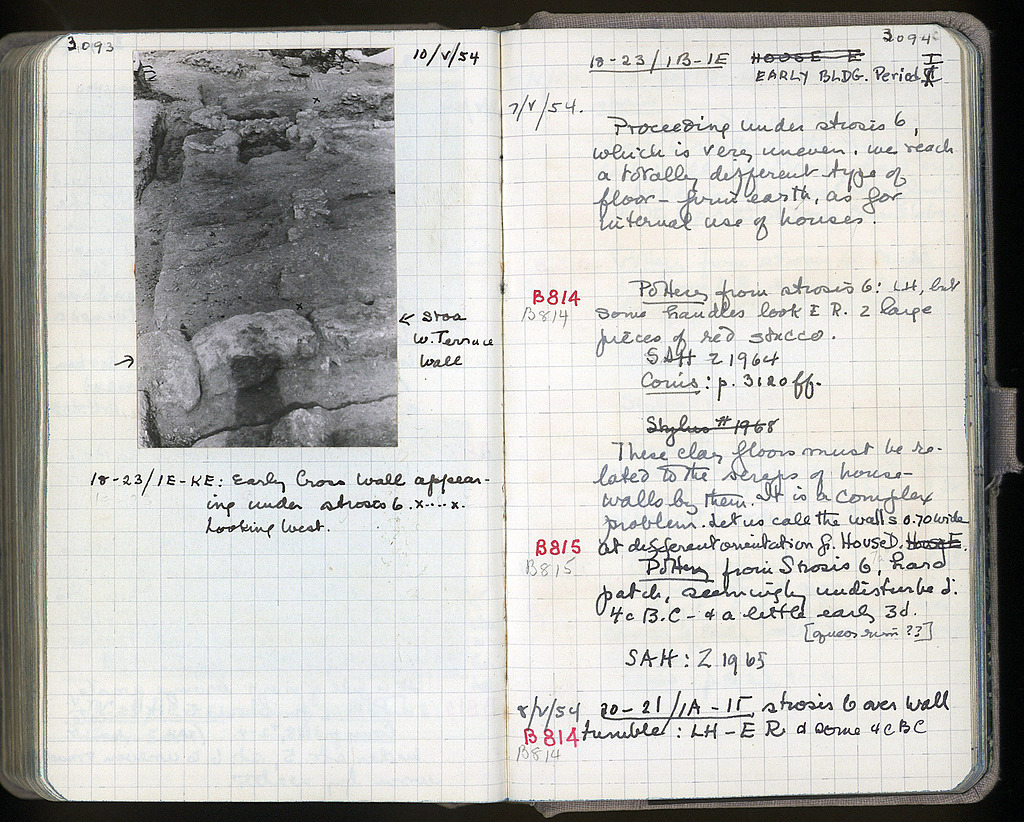 3093
10/V/54
← Stoa
W. Terrace
Wall
→
18-23/1E-KE: Early Cross Wall appear-
ing under strosis 6 .x....x.
Looking West.
3094
18-23/1B-1E HOUSE E
EARLY BLDG. Period I
7/V/54.
Proceeding under strosis 6,
which is very uneven. we reach
a totally different type of
floor - firm earth, as for
internal use of houses.
B814
B814
Pottery from strosis 6: LH, but
some handles look E R. 2 large
pieces of red stucco.
SAH Z 1964
Coins: p. 3120 ff.
Stylus # 1968
These clay floors must be re-
lated to the scraps of house-
walls by them. It is a complex
problem. Let us call the walls 0.70 wide
at different orientation fr. House D. House E.
B815
B815
Pottery from Strosis 6, hard
patch, seemingly undisturbed.
4c B.C - & a little early 3d.
SAH: Z 1965
8/V/54 20-21/1A-1Γ, strosis 6 over wall
B814
B814
tumble: LH - E R & some 4c BC